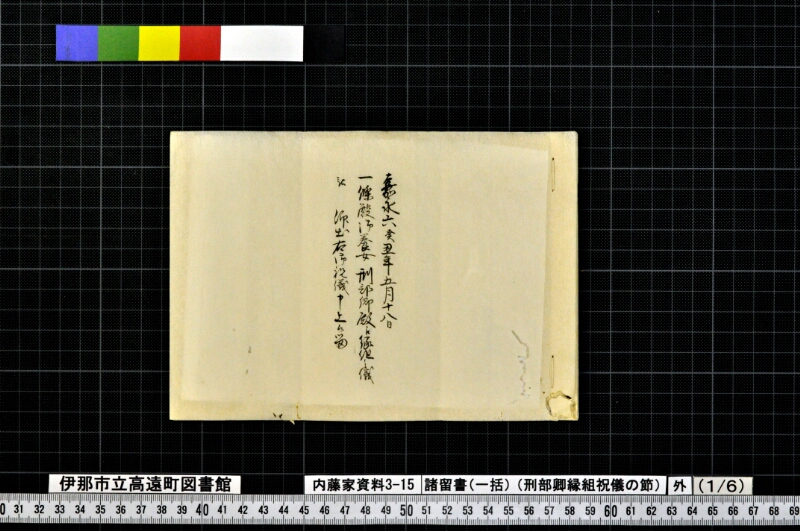 嘉永六癸丑年五月十八日
一條殿御養女刑部卿殿江縁組之儀
被 仰出右御祝儀申上候留
伊那市立高遠町図書館
内藤家資料3-15 諸留書(一括)(刑部卿縁組祝儀の節) 外 (1/6)
0 31 32 33 34 35 36 37 38 39 40 41 42 43 44 45 46 47 48 49 50 51 52 53 54 55 56 57 58 59 60 61 62 63 64 65 66 67 68 69